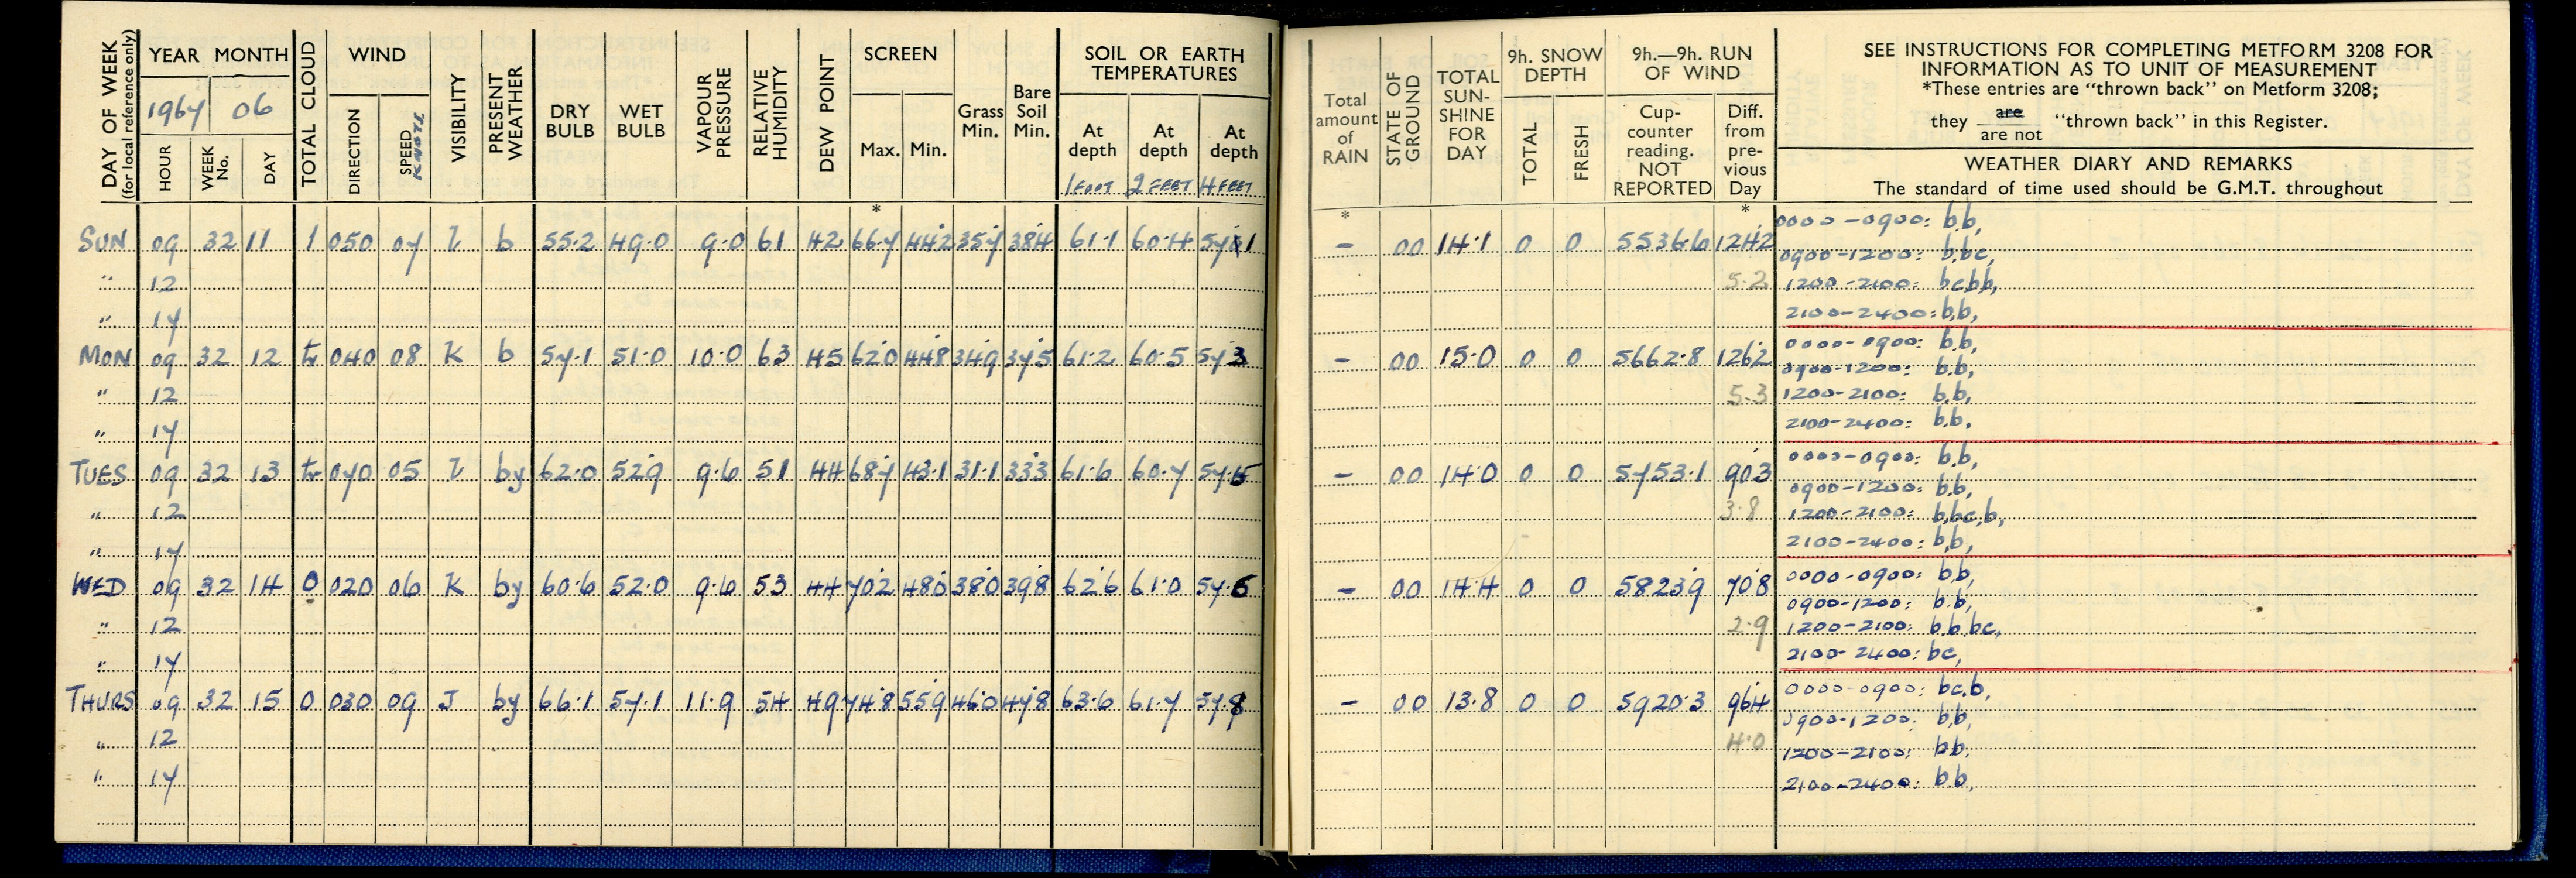 DAY OF WEEK (for local reference only)
YEAR MONTH
1967 06
HOUR WEEK No. DAY
TOTAL CLOUD
WIND
DIRECTION SPEED KNOTS
VISIBILITY
PRESENT WEATHER
DRY BULB
WET BULB
VAPOUR PRESSURE
RELATIVE HUMIDITY
DEW POINT
SCREEN
Max. Min.
Grass Min.
Bare Soil Min.
SOIL OR EARTH TEMPERATURES
At depth 1 FOOT At depth 2 FEET At depth 4 FEET
*
SUN 09 32 11 1 050 07 I b 55.2 49.0 9.0 61 42 66.7 44.2 35.7 38.4 61.1 60.4 57.1
" 12
" 17
MON 09 32 12 tr 040 08 K b 57.1 51.0 10.0 63 45 62.0 44.8 34.9 37.5 61.2 60.5 57.3
" 12
" 17
TUES 09 32 13 tr 070 05 I by 62.0 52.9 9.6 51 44 68.7 43.1 31.1 33.3 61.6 60.7 57.5
" 12
" 17
WED 09 32 14 0 020 06 K by 60.6 52.0 9.6 53 44 70.2 48.0 38.0 39.8 62.6 61.0 57.6
" 12
" 17
THURS 09 32 15 0 030 09 J by 66.1 57.1 11.9 54 49 74.8 55.9 46.0 47.8 63.6 61.7 57.8
" 12
" 17
Total amount of RAIN
STATE OF GROUND
TOTAL SUN-SHINE FOR DAY
9h. SNOW DEPTH
TOTAL FRESH
9h.—9h. RUN OF WIND
Cup-counter reading. NOT REPORTED
Diff. from pre-vious Day
SEE INSTRUCTIONS FOR COMPLETING METFORM 3208 FOR
INFORMATION AS TO UNIT OF MEASUREMENT
*These entries are "thrown back" on Metform 3208;
they are / are not "thrown back" in this Register.
WEATHER DIARY AND REMARKS
The standard of time used should be G.M.T. throughout
* *
0000-0900: b,b,
- 00 14.1 0 0 5536.6 124.2
0900-1200: b,bc,
5.2 1200-2100: bc,b,b,
2100-2400: b,b,
0000-0900: b,b,
- 00 15.0 0 0 5662.8 126.2
0900-1200: b,b,
5.3 1200-2100: b,b,
2100-2400: b,b,
0000-0900: b,b,
- 00 14.0 0 0 5753.1 90.3
0900-1200: b,b,
3.8 1200-2100: b,bc,b,
2100-2400: b,b,
0000-0900: b,b,
- 00 14.4 0 0 5823.9 70.8
0900-1200: b,b,
2.9 1200-2100: b,b,bc,
2100-2400: bc,
0000-0900: bc,b,
- 00 13.8 0 0 5920.3 96.4
0900-1200: b,b,
4.0 1200-2100: b,b,
2100-2400: b,b,